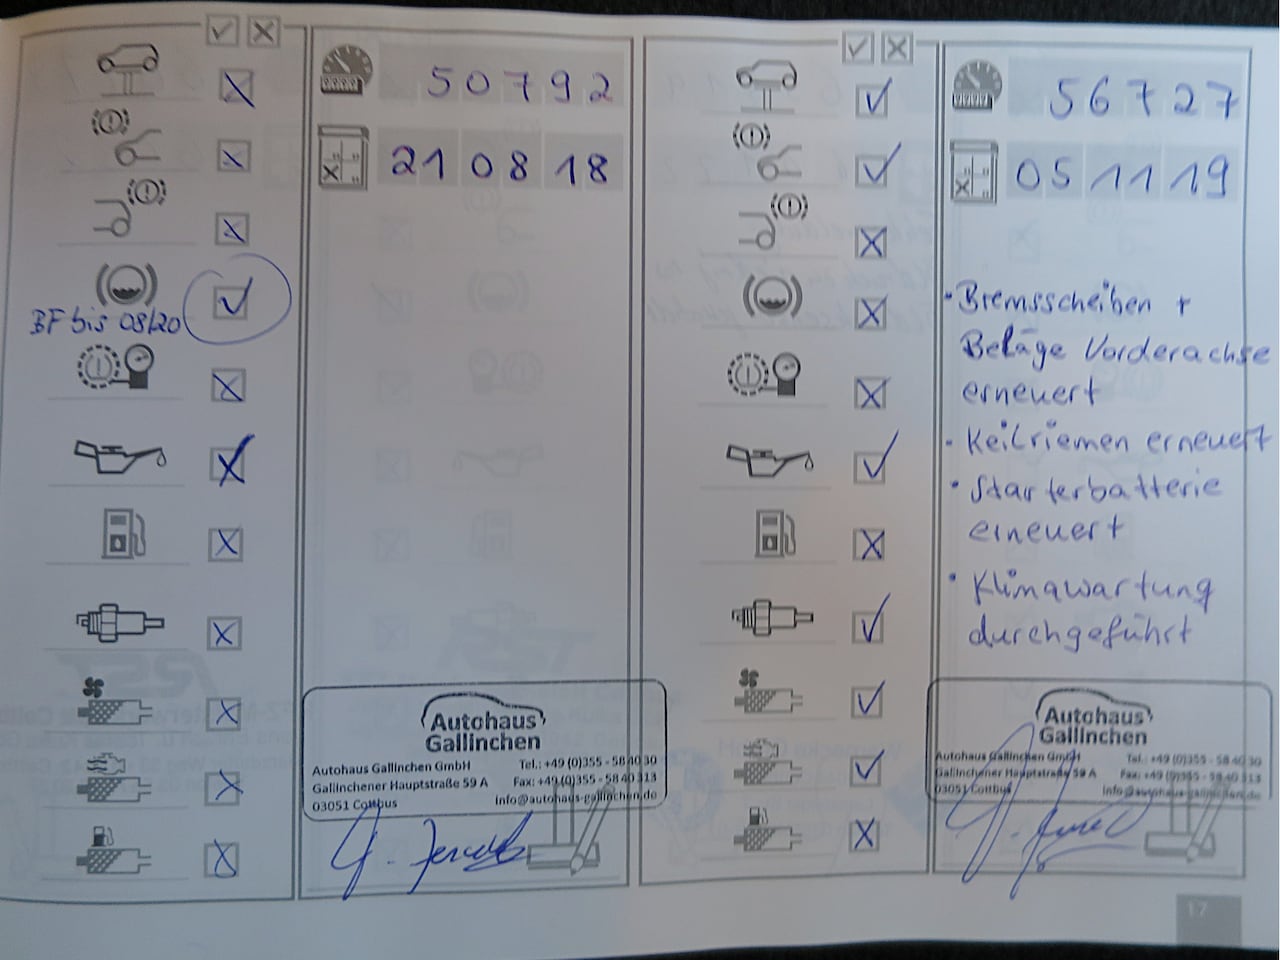 50792
21 08 18
BF bis 08/20
Autohaus
Gallinchen
Autohaus Gallinchen GmbH
Gallinchener Hauptstraße 59 A
03051 Cottbus
Tel.: +49 (0)355 - 58 40 30
Fax: +49 (0)355 - 58 40 313
info@autohaus-gallinchen.de
56727
05 11 19
• Bremsscheiben +
Beläge Vorderachse
erneuert
- Keilriemen erneuert
• Starterbatterie
erneuert
• Klimawartung
durchgeführt
Autohaus
Gallinchen
Autohaus Gallinchen GmbH
Gallinchener Hauptstraße 59 A
03051 Cottbus
Tel.: +49 (0)355 - 58 40 30
Fax: +49 (0)355 - 58 40 313
info@autohaus-gallinchen.de
17